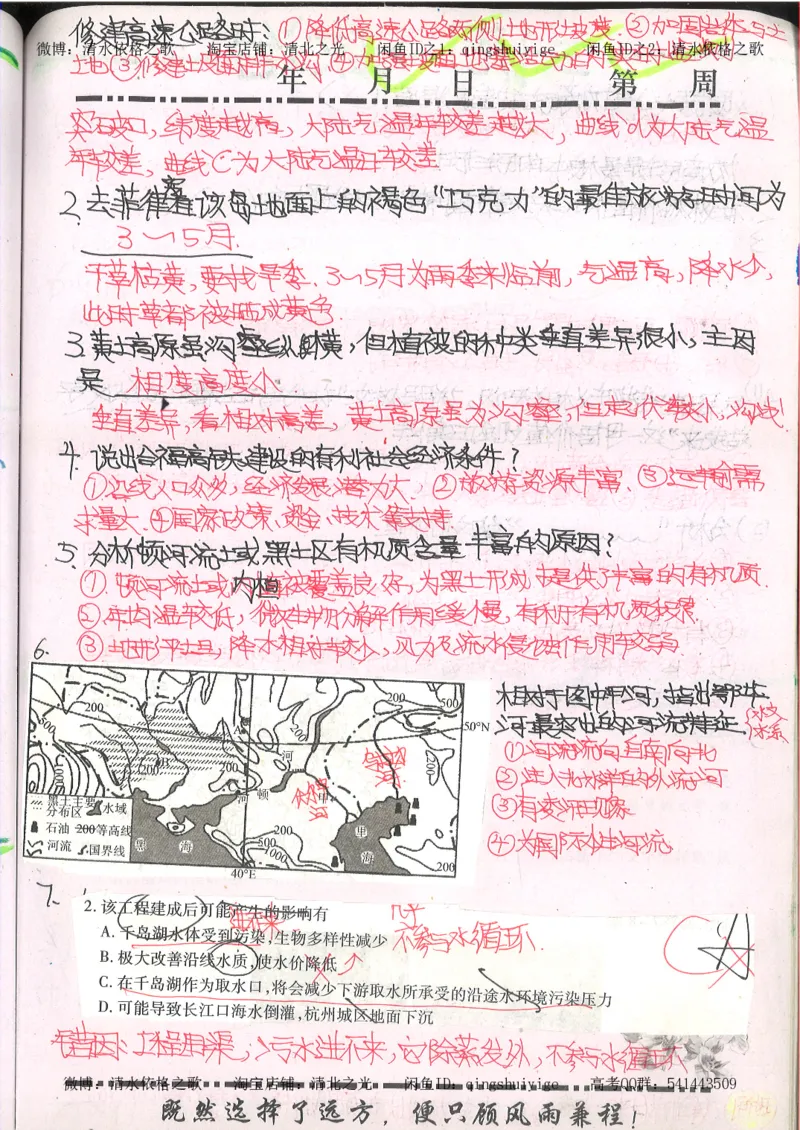 修建高速公路时:①降低高速公路两侧土地形坡度.②加固
微博:清水依格之歌 淘宝店铺:清北之光 闲鱼ID之1:qingshuiyige 闲鱼ID之2:清水依格之歌
年 月 日 第 周
纬度越高,大陆气温年较差越大,曲线d为大陆气温
年较差,曲线C为大陆气温日较差
2.去菲律宾该岛地面上的褐色“巧克力”的最佳旅游时间为
3~5月.
干草枯黄,要找旱季.3~5月为雨季来临前,气温高,降水少,
此时草都被晒成黄色
3.黄土高原虽沟壑纵横,但植被的种类垂直差异很小,主因
是 相度高度小.
垂直差异,有相对高差,黄土高原虽为沟壑,但起伏较小,沟浅
4.说出合福高铁建设的有利社会经济条件?
①沿线人口众多,经济发展潜力大.②旅游资源丰富.③运输需
求量大.④国家政策、资金、技术等支持
5.分析顿河流域黑土区有机质含量丰富的原因?
①.顿河流域内植被覆盖良好,为黑土形成提供了丰富的有机质.
②年均温较低,微生物分解作用缓慢,有利于有机质积累.
③地形平坦,降水相对较少,风力及流水侵蚀作用较弱
6.
相对于图中甲河,指出鄂毕
河最突出的河流特征.
水文
水系
①河流流向自南向北
②注入北冰洋的外流河
③有凌汛现象
④为国际性河流
200
500
50°N
500
200
A
200
1000
B
200
200
河
200
顿
河
甲
伏尔加河
200
500
1000
里
海
黑
海
200
40°E
黑土主要分布区
水域
石油
200等高线
河流
国界线
7.
2.该工程建成后可能产生的影响有
带来
A.千岛湖水体受到污染,生物多样性减少
几乎
不参与水循环.
B.极大改善沿线水质,使水价降低
C.在千岛湖作为取水口,将会减少下游取水所承受的沿途水环境污染压力
D.可能导致长江口海水倒灌,杭州城区地面下沉
错因:工程用渠,污水进不来,它除蒸发外,不参与水循环
微博:清水依格之歌 淘宝店铺:清北之光 闲鱼ID:qingshuiyige 高考QQ群:541443509
既然选择了远方,便只顾风雨兼程!